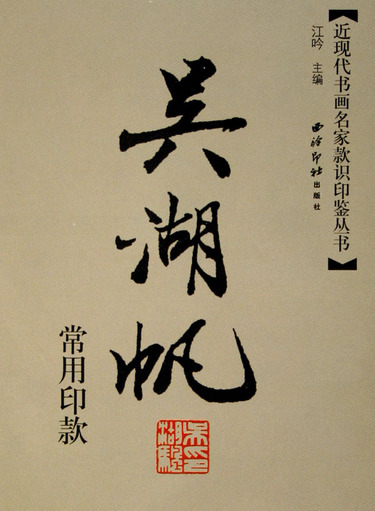 【近现代书画名家款识印鉴丛书】
江吟 主编
西泠印社出版社
吴湖帆
常用印款